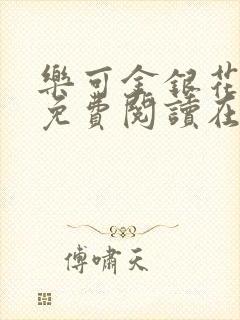 樂可金銀花
免費閱讀在
傅嘯天